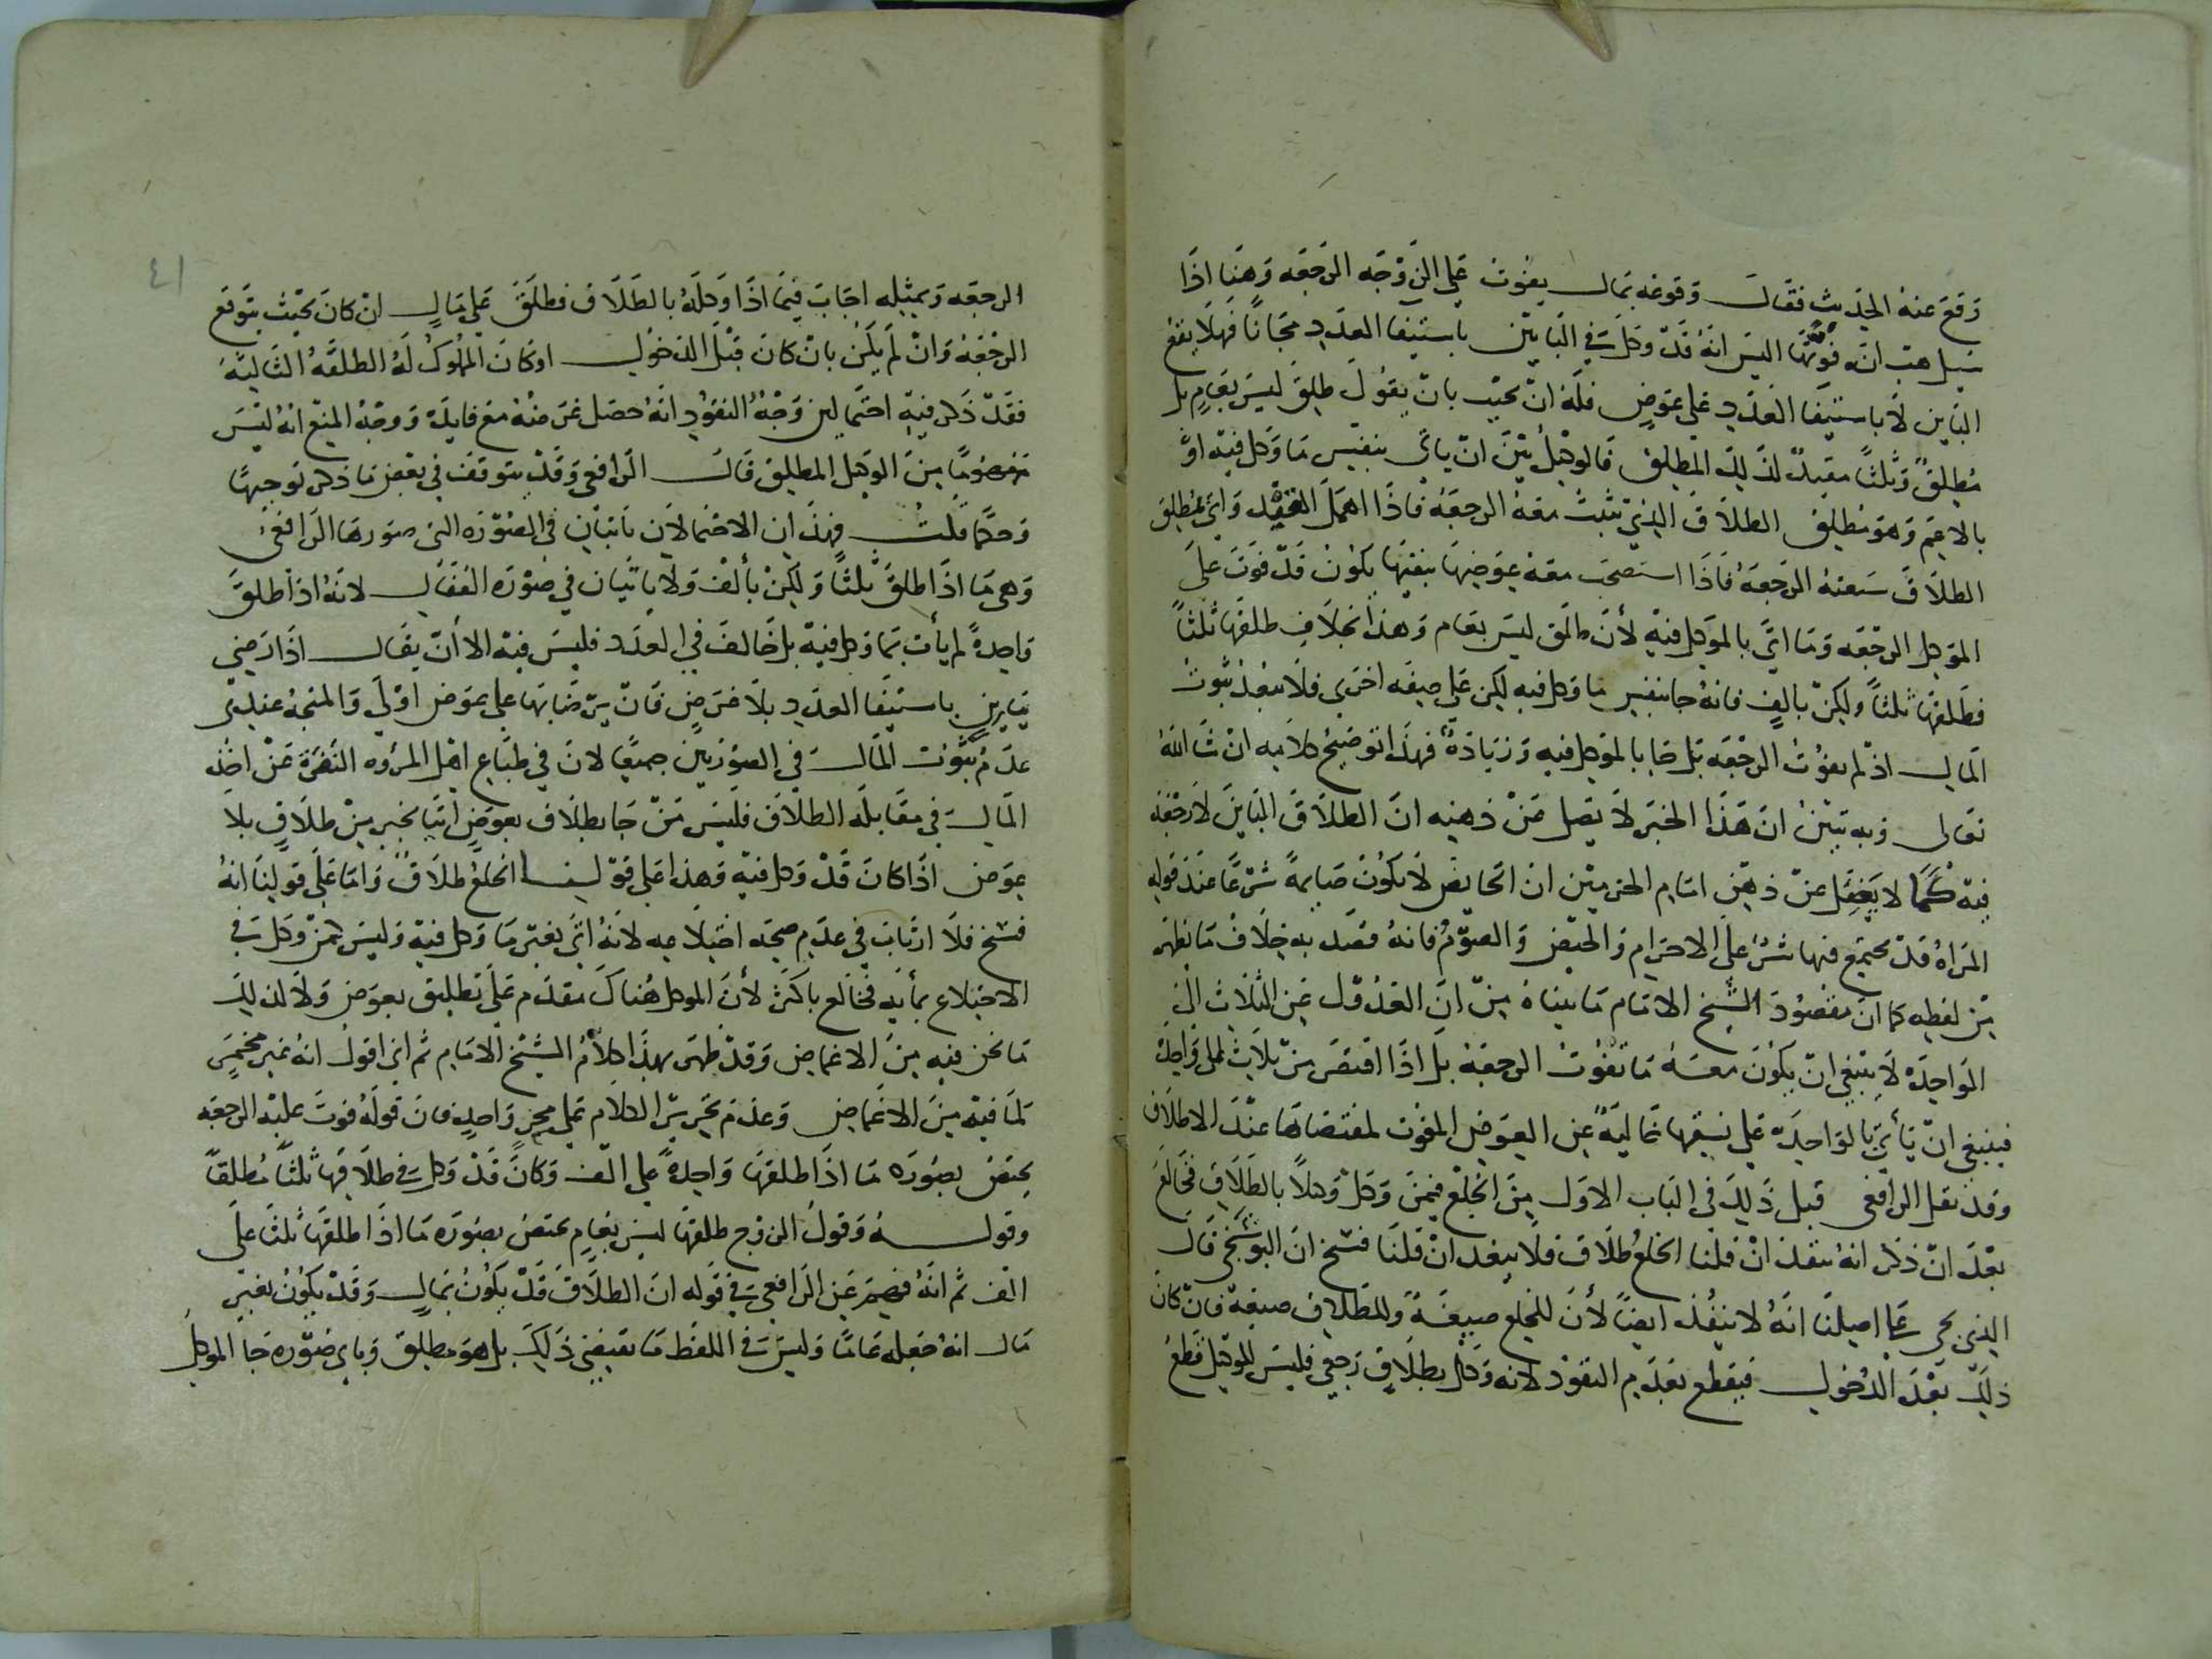 وقع عنه الحديث فقال وقوعه بمال يفوت على الزوجه الرجعه وهنا اذا
سيل هب انه فوتها اليس انه قد وكل في الباين باستيفا العدد مجانا فهلا يقع
الباين لا باستيفا العدد على عوض فله ان يجيب بان يقول طلق ليس بعام بل
مطلق وثلثا مقيد لذلك المطلق فالوكيل بين ان ياتي بنفس ما وكل فيه او
بالاعم وهو مطلق الطلاق الذي يثبت معه الرجعه فاذا اهمل القيد واتى بمطلق
الطلاق سعته الرجعه فاذا استصحب معه عوضها بنفيها يكون قد فوت على
الموكل الرجعه وما اتى بالموكل فيه لأن طلق ليس بعام وهذا بخلاف طلقها ثلثا
فطلقها ثلثا ولكن بالف فانه جا بنفس ما وكل فيه لكن على صيغه اخرى فلا يبعد ثبوت
المال اذ لم يفوت الرجعه بل جا بالموكل فيه وزيادة فهذا توضيح كلامه ان شا الله
تعالى وبه تبين ان هذا الحبر لا يضل عن ذهنه ان الطلاق الباين لا رجعة
فيه كما لا يغفل عن ذهن امام الحرمين ان الحايض لا يكون صايمة شرعا عند قوله
المراة قد يجتمع فيها شرعا الاحرام والحيض والصوم فانه قصد به خلاف ما يظهر
من لفظه كما ان مقصود الشيخ الامام ما بيناه من ان العدول عن الثلاث الى
الواحدة لا ينبغي ان يكون معه ما تفوت الرجعة بل اذا اقتصر من ثلاث على واحدة
فينبغي ان يأتي بالواحدة على نسقها خالية عن العوض المفوت لمقتضاها عند الاطلاق
وقد نقل الرافعي قبل ذلك في الباب الاول من الخلع فيمن وكل وكيلا بالطلاق فخالع
بعد ان ذكر انه ينفذ ان قلنا الخلع طلاق فلا ينفذ ان قلنا فسخ ان البوشنجي قال
الذي يجي على اصلنا انه لا ينفذ ايضا لأن للخلع صيغة وللطلاق صيغة فان كان
ذلك بعد الدخول فيقطع بعدم النفوذ لانه وكل بطلاق رجعي فليس للوكيل قطع
٤١
الرجعه وبمثله اجاب فيما اذا وكله بالطلاق فطلق على مال ان كان بحيث يتوقع
الرجعة وان لم يكن بان كان قبل الدخول او كان المملوك له الطلقه الثالثه
فقد ذكر فيه احتمالين وجه النفوذ انه حصل غرضه مع فايدة ووجه المنع انه ليس
مفهوما من الوكيل المطلق قال الرافعي وقد يتوقف في بعض ما ذكر توجيها
وحكما قلت فهذان الاحتمالان ياتيان في الصورة التي صورها الرافعي
وهي ما اذا طلق ثلثا ولكن بألف ولا ياتيان في صورة القفال لانه اذا طلق
واحدة لم يأت بما وكل فيه بل خالف في العدد فليس فيه الا ان يقال اذا رضي
باستيفا العدد بلا عوض فان يرضا بها على عوض اولى والمتجه عندي
عدم ثبوت المال في الصورتين جميعا لان في طباع اهل المروه النفرة عن اخذ
المال في مقابلة الطلاق فليس من جا بطلاق بعوض اتيا بخير من طلاق بلا
عوض اذا كان قد وكل فيه وهذا على قولنا الخلع طلاق واما على قولنا انه
فسخ فلا ارتياب في عدم صحة اختلاعه لانه اتى بغير ما وكل فيه وليس كمن وكل في
الاختلاع بمأيه فخالع باكثر لأن الموكل هناك مقدم على تطليق بعوض ولا كذلك
ما نحن فيه من الاغماض وقد ظهر بهذا كلام الشيخ الامام ثم اني اقول انه غير مخمر
لما فيه من الاغماض وعدم تحرير الكلام على محز واحد فان قوله فوت عليه الرجعه
يختص بصورة ما اذا طلقها واحدة على الف وكان قد وكل في طلاقها ثلثا مطلقا
وقوله وقول الزوج طلقها ليس بعام يختص بصورة ما اذا طلقها ثلثا على
الف ثم انه فهم عن الرافعي في قوله ان الطلاق قد يكون بمال وقد يكون بغير
مال انه جعله عاما وليس في اللفظ ما يقتضي ذلك بل هو مطلق وباي صورة جا الموكل